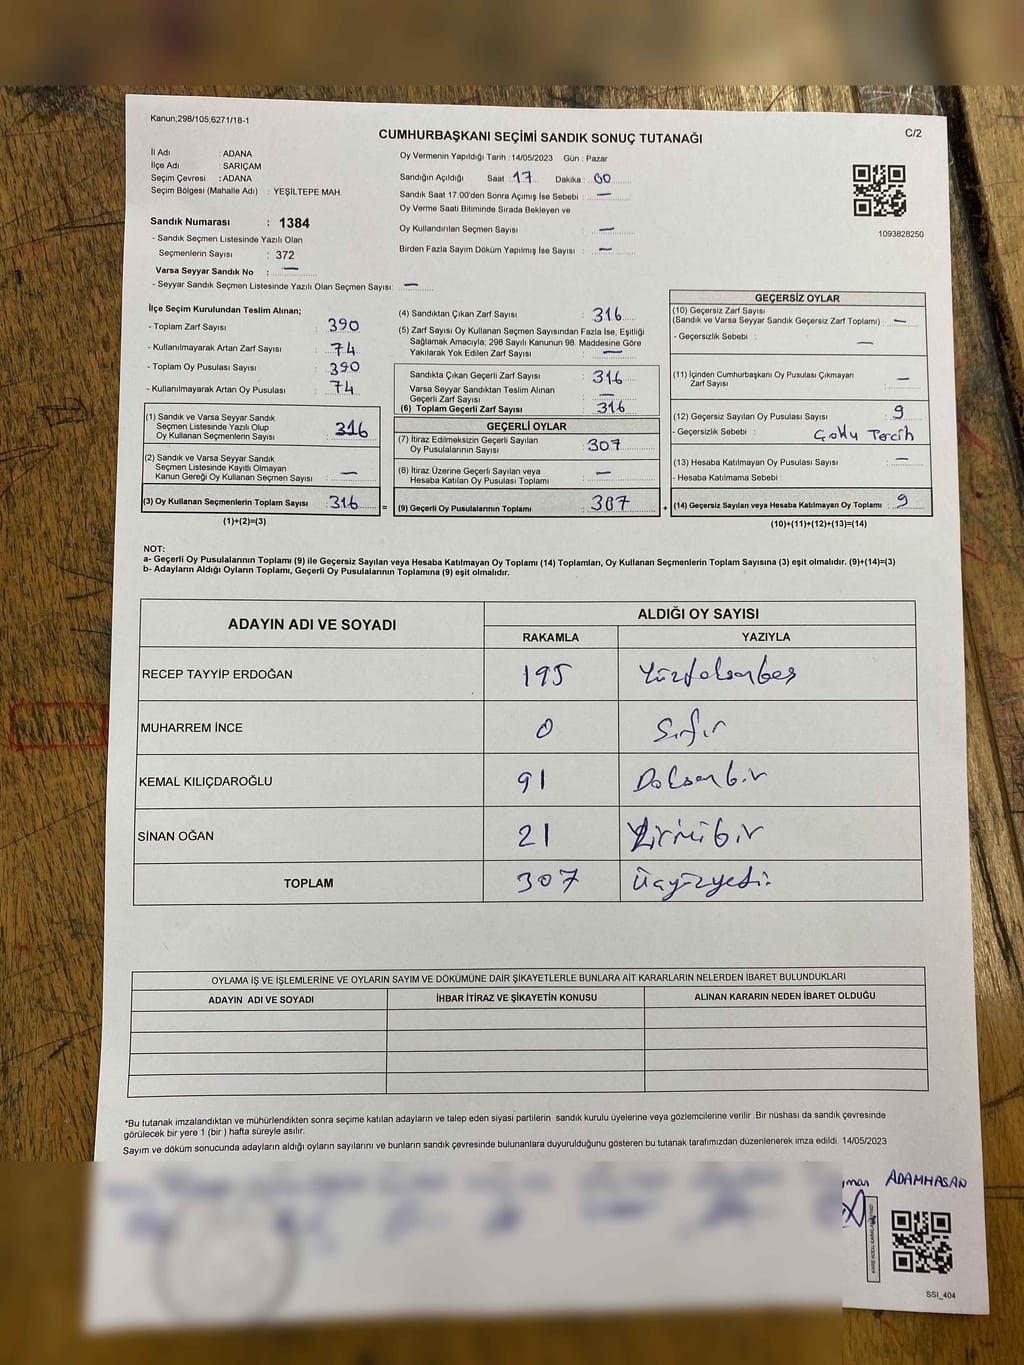 Kanun;298/105,6271/18-1
CUMHURBAŞKANI SEÇİMİ SANDIK SONUÇ TUTANAĞI
C/2
İl Adı : ADANA
İlçe Adı : SARIÇAM
Seçim Çevresi : ADANA
Seçim Bölgesi (Mahalle Adı) : YEŞİLTEPE MAH.
Sandık Numarası : 1384
- Sandık Seçmen Listesinde Yazılı Olan
Seçmenlerin Sayısı : 372
Varsa Seyyar Sandık No : —
- Seyyar Sandık Seçmen Listesinde Yazılı Olan Seçmen Sayısı: —
Oy Vermenin Yapıldığı Tarih : 14/05/2023 Gün : Pazar
Sandığın Açıldığı Saat : 17 Dakika : 00
Sandık Saat 17.00'den Sonra Açımış İse Sebebi : —
Oy Verme Saati Bitiminde Sırada Bekleyen ve
Oy Kullandırılan Seçmen Sayısı —
Birden Fazla Sayım Döküm Yapılmış İse Sayısı : —
1093828250
İlçe Seçim Kurulundan Teslim Alınan;
- Toplam Zarf Sayısı : 390
- Kullanılmayarak Artan Zarf Sayısı : 74
- Toplam Oy Pusulası Sayısı : 390
- Kullanılmayarak Artan Oy Pusulası : 74
(1) Sandık ve Varsa Seyyar Sandık
Seçmen Listesinde Yazılı Olup
Oy Kullanan Seçmenlerin Sayısı : 316
(2) Sandık ve Varsa Seyyar Sandık
Seçmen Listesinde Kayıtlı Olmayan
Kanun Gereği Oy Kullanan Seçmen Sayısı : —
(3) Oy Kullanan Seçmenlerin Toplam Sayısı : 316 =
(1)+(2)=(3)
(4) Sandıktan Çıkan Zarf Sayısı : 316
(5) Zarf Sayısı Oy Kullanan Seçmen Sayısından Fazla İse, Eşitliği
Sağlamak Amacıyla; 298 Sayılı Kanunun 98. Maddesine Göre
Yakılarak Yok Edilen Zarf Sayısı : —
Sandıkta Çıkan Geçerli Zarf Sayısı : 316
Varsa Seyyar Sandıktan Teslim Alınan
Geçerli Zarf Sayısı : —
(6) Toplam Geçerli Zarf Sayısı : 316
GEÇERLİ OYLAR
(7) İtiraz Edilmeksizin Geçerli Sayılan
Oy Pusulalarının Sayısı : 307
(8) İtiraz Üzerine Geçerli Sayılan veya
Hesaba Katılan Oy Pusulası Toplamı : —
(9) Geçerli Oy Pusulalarının Toplamı : 307 +
GEÇERSİZ OYLAR
(10) Geçersiz Zarf Sayısı
(Sandık ve Varsa Seyyar Sandık Geçersiz Zarf Toplamı) : —
- Geçersizlik Sebebi : —
(11) İçinden Cumhurbaşkanı Oy Pusulası Çıkmayan
Zarf Sayısı : —
(12) Geçersiz Sayılan Oy Pusulası Sayısı : 9
- Geçersizlik Sebebi : Çoklu Tercih
(13) Hesaba Katılmayan Oy Pusulası Sayısı : —
- Hesaba Katılmama Sebebi :
(14) Geçersiz Sayılan veya Hesaba Katılmayan Oy Toplamı : 9
(10)+(11)+(12)+(13)=(14)
NOT:
a- Geçerli Oy Pusulalarının Toplamı (9) ile Geçersiz Sayılan veya Hesaba Katılmayan Oy Toplamı (14) Toplamları, Oy Kullanan Seçmenlerin Toplam Sayısına (3) eşit olmalıdır. (9)+(14)=(3)
b- Adayların Aldığı Oyların Toplamı, Geçerli Oy Pusulalarının Toplamına (9) eşit olmalıdır.
ADAYIN ADI VE SOYADI ALDIĞI OY SAYISI
RAKAMLA YAZIYLA
RECEP TAYYİP ERDOĞAN 195 Yüzdoksanbeş
MUHARREM İNCE 0 Sıfır
KEMAL KILIÇDAROĞLU 91 Doksanbir
SİNAN OĞAN 21 Yirmibir
TOPLAM 307 Üçyüzyedi
OYLAMA İŞ VE İŞLEMLERİNE VE OYLARIN SAYIM VE DÖKÜMÜNE DAİR ŞİKAYETLERLE BUNLARA AİT KARARLARIN NELERDEN İBARET BULUNDUKLARI
ADAYIN ADI VE SOYADI İHBAR İTİRAZ VE ŞİKAYETİN KONUSU ALINAN KARARIN NEDEN İBARET OLDUĞU
*Bu tutanak imzalandıktan ve mühürlendikten sonra seçime katılan adayların ve talep eden siyasi partilerin sandık kurulu üyelerine veya gözlemcilerine verilir. Bir nüshası da sandık çevresinde
görülecek bir yere 1 (bir) hafta süreyle asılır.
Sayım ve döküm sonucunda adayların aldığı oyların sayılarını ve bunların sandık çevresinde bulunanlara duyurulduğunu gösteren bu tutanak tarafımızdan düzenlenerek imza edildi. 14/05/2023
ADAMHASAN
SSI_404